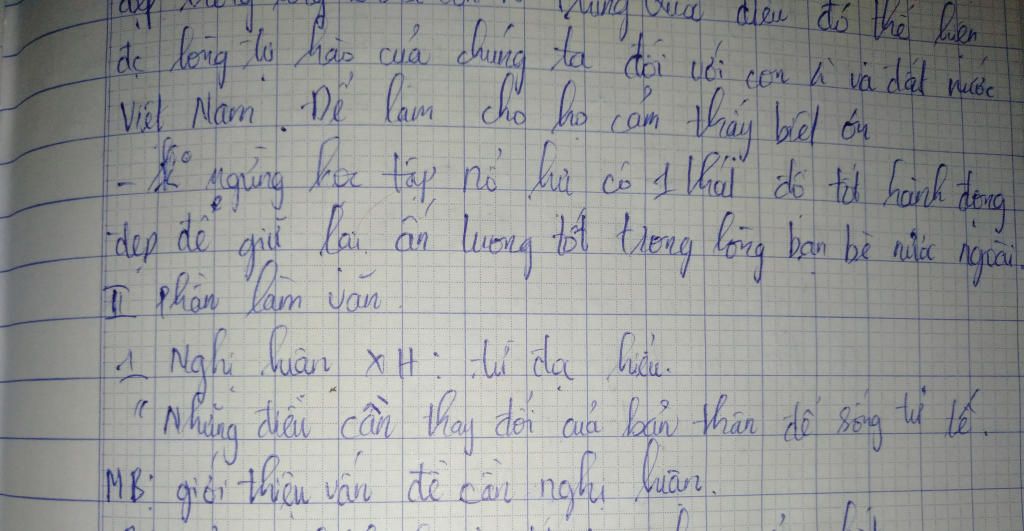 đẹp trong lòng Qua điều đó thể hiện
đc lòng tự hào của chúng ta đối với con và đất nước
Việt Nam. Để làm cho họ cảm thấy biết ơn
- ngừng học tập nỗ lực có 1 thái độ tốt hành động
đẹp để giữ lại ấn tượng tốt trong lòng bạn bè nước ngoài.
II phần làm văn.
1 Nghị luận XH:
"Những điều cần thay đổi của bản thân để sống tử tế.
MB: giới thiệu vấn đề cần nghị luận.